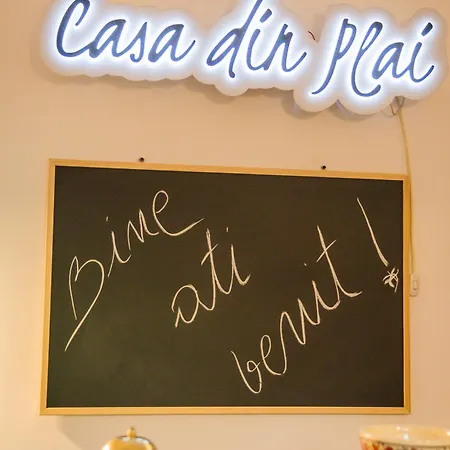 Casa din Plai
Bine
ati
venit!